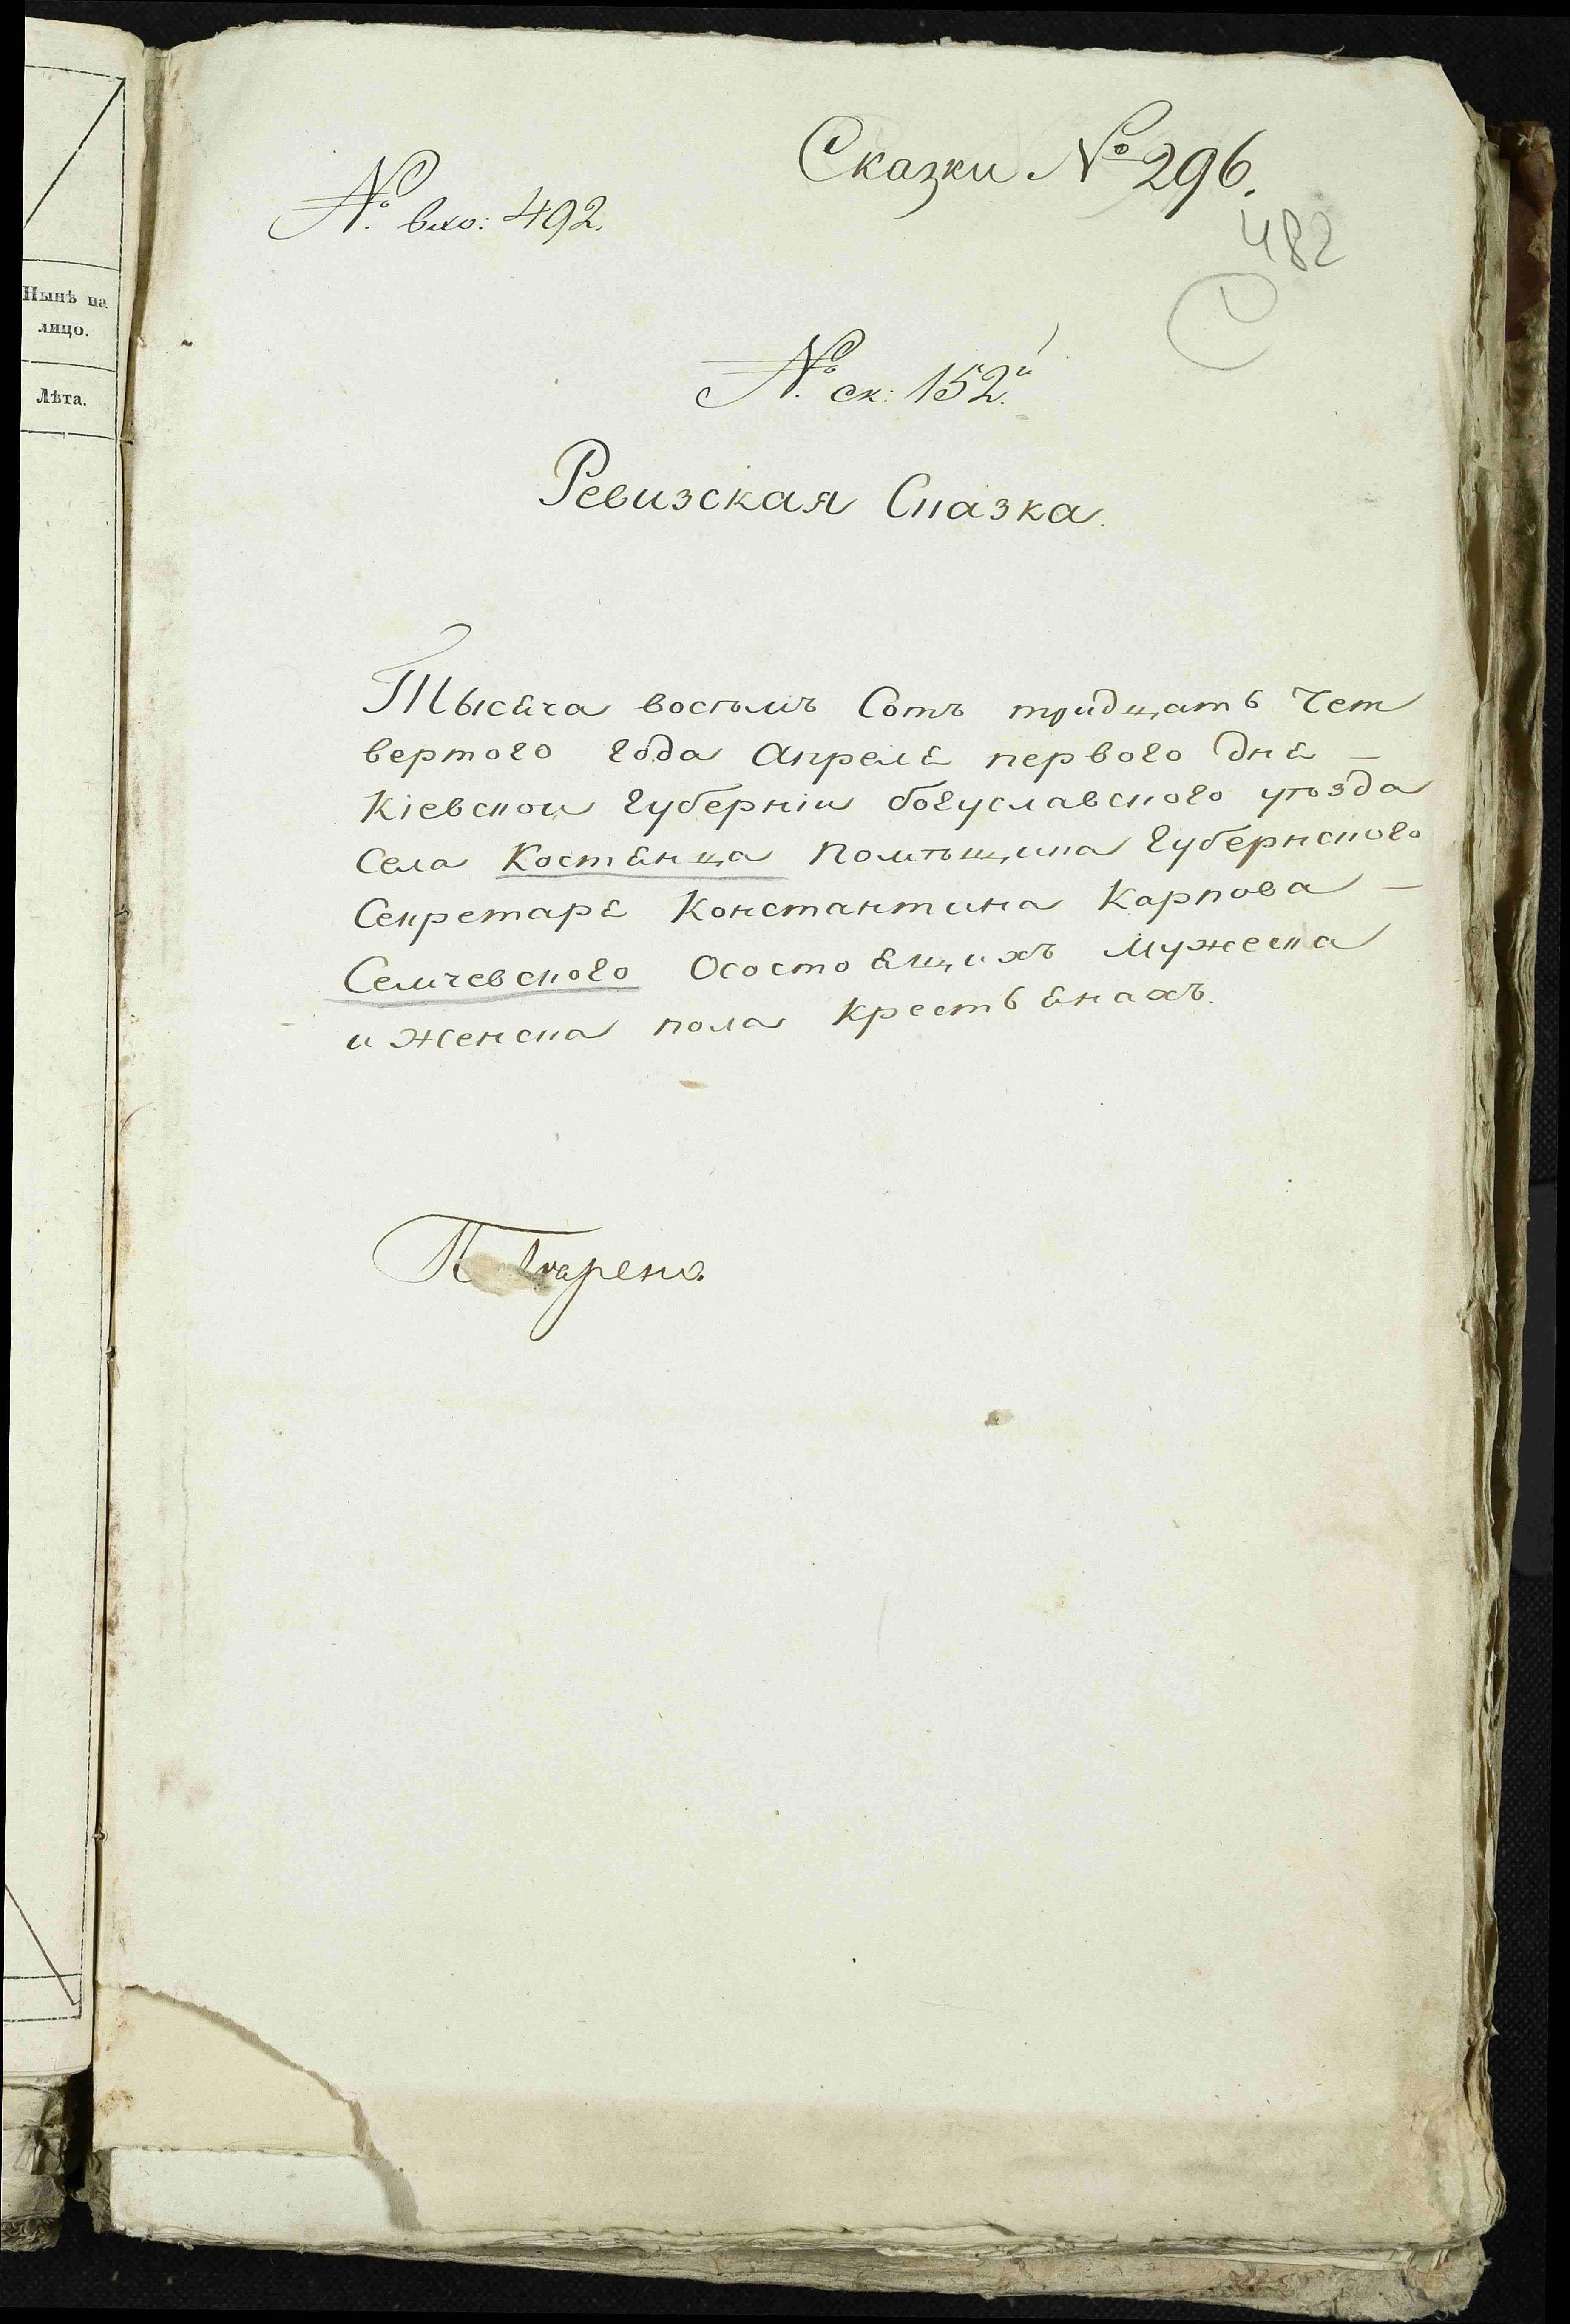 Сказки № 296.
№ вхо: 492.
482
№ ск: 152.й
Ревизская Сказка.
Тысяча восѣмъ Сотъ тридцать Чет
вертого года Апреля первого дня –
Кіевской губерніи богуславского уѣзда
Села Костянца Помѣщика Губернского
Секретаря Константина Карпова –
Семчевского Осостоящихъ мужеска
и Женска пола Крестьянахъ.
Нынѣ на
лицо.
Лѣта.